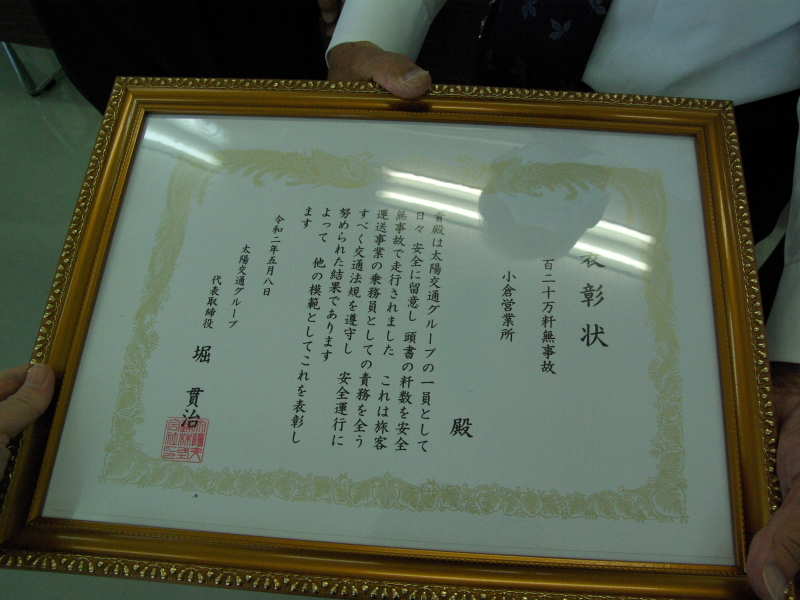 表彰状
百二十万粁無事故
小倉営業所
殿
貴殿は太陽交通グループの一員として
日々 安全に留意し 頭書の粁数を安全
無事故で走行されました これは旅客
運送事業の乗務員としての責務を全う
すべく交通法規を遵守し 安全運行に
努められた結果であります
よって 他の模範としてこれを表彰し
ます
令和二年五月八日
太陽交通グループ
代表取締役 堀 貫治